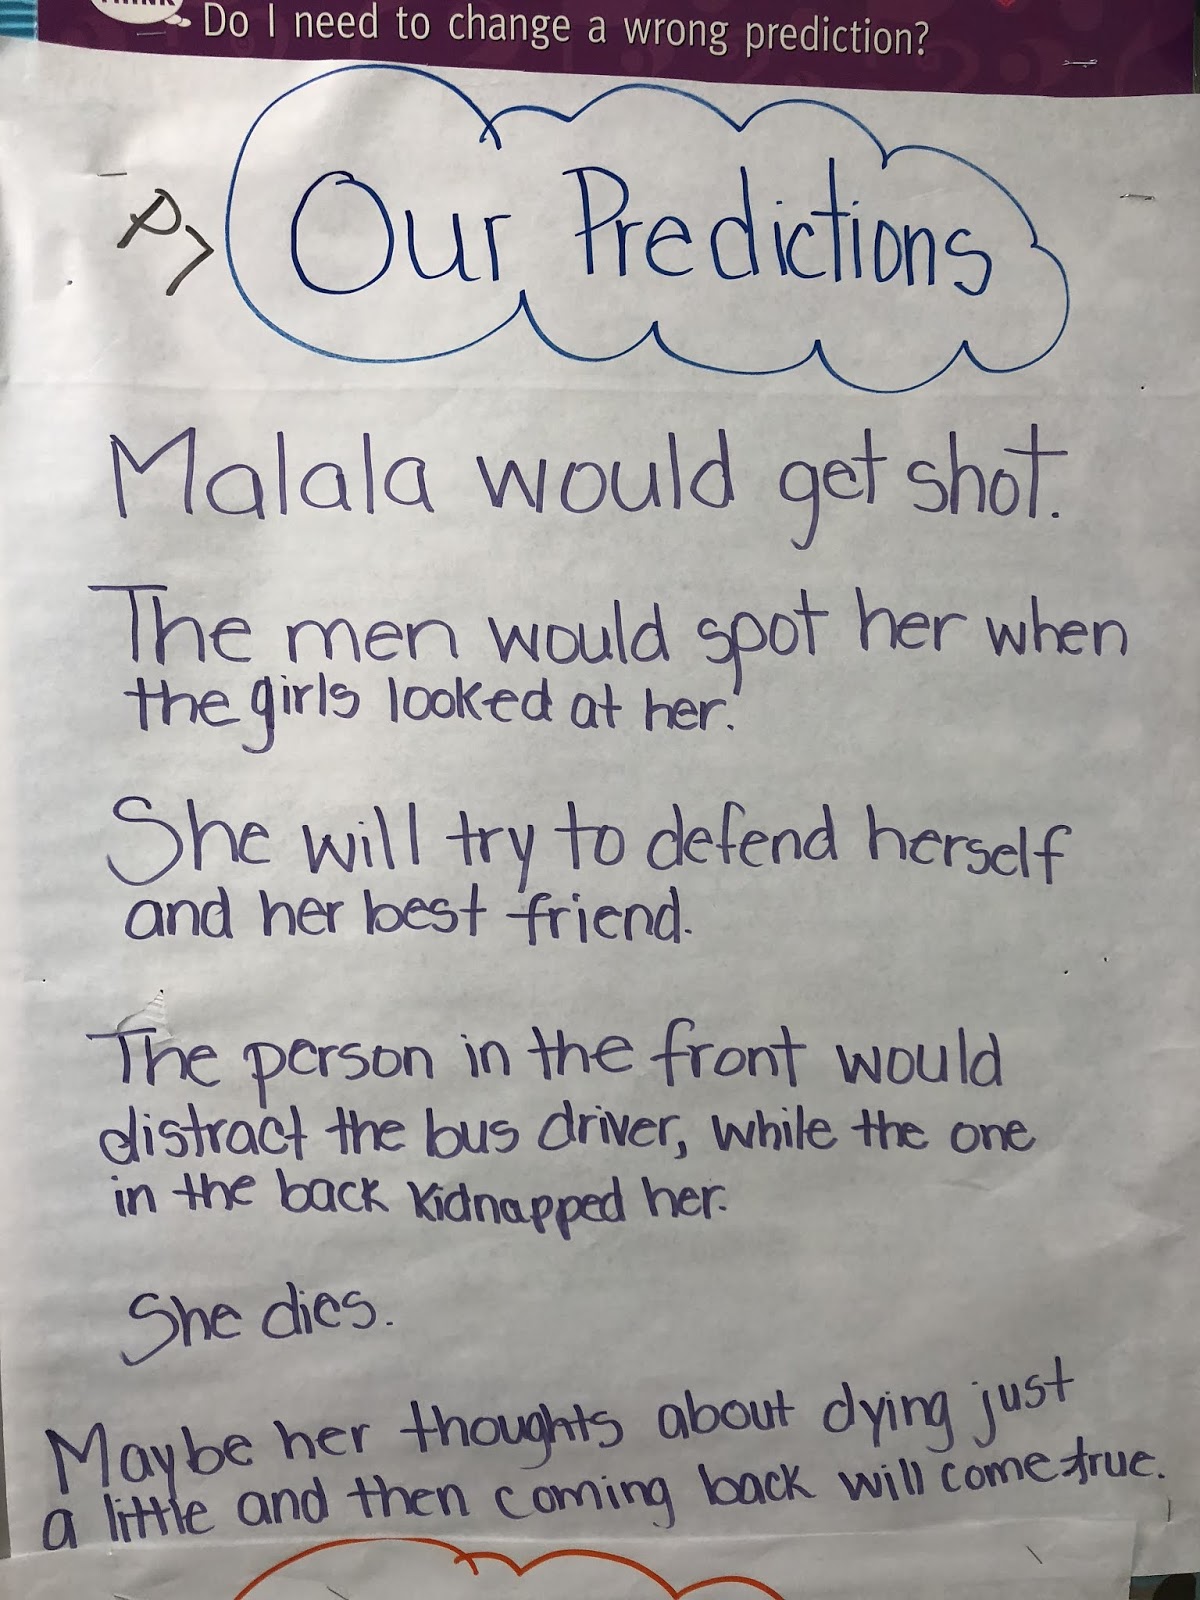 THINK
Do I need to change a wrong prediction?
P7
Our Predictions
Malala would get shot.
The men would spot her when
the girls looked at her.
She will try to defend herself
and her best friend.
The person in the front would
distract the bus driver, while the one
in the back kidnapped her.
She dies.
Maybe her thoughts about dying just
a little and then coming back will come true.